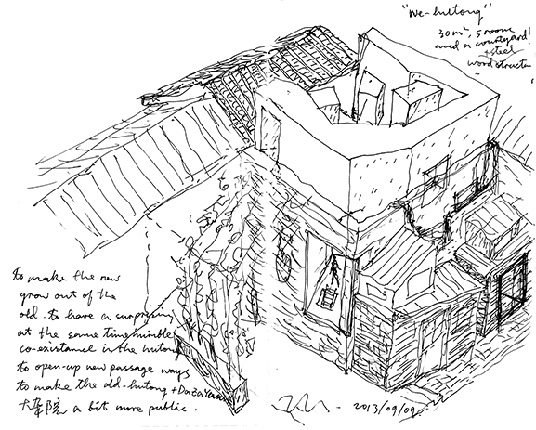 "We-hutong"
30m², 5 room
and a courtyard
+ steel
wood structu
to make the new
grow out of the
old. to have a surprising
at the same time humble
co-existance in the hutong
to open-up new passage ways
to make the old-hutong + DaZaYuan
大杂院 a bit more public.
2013/09/09